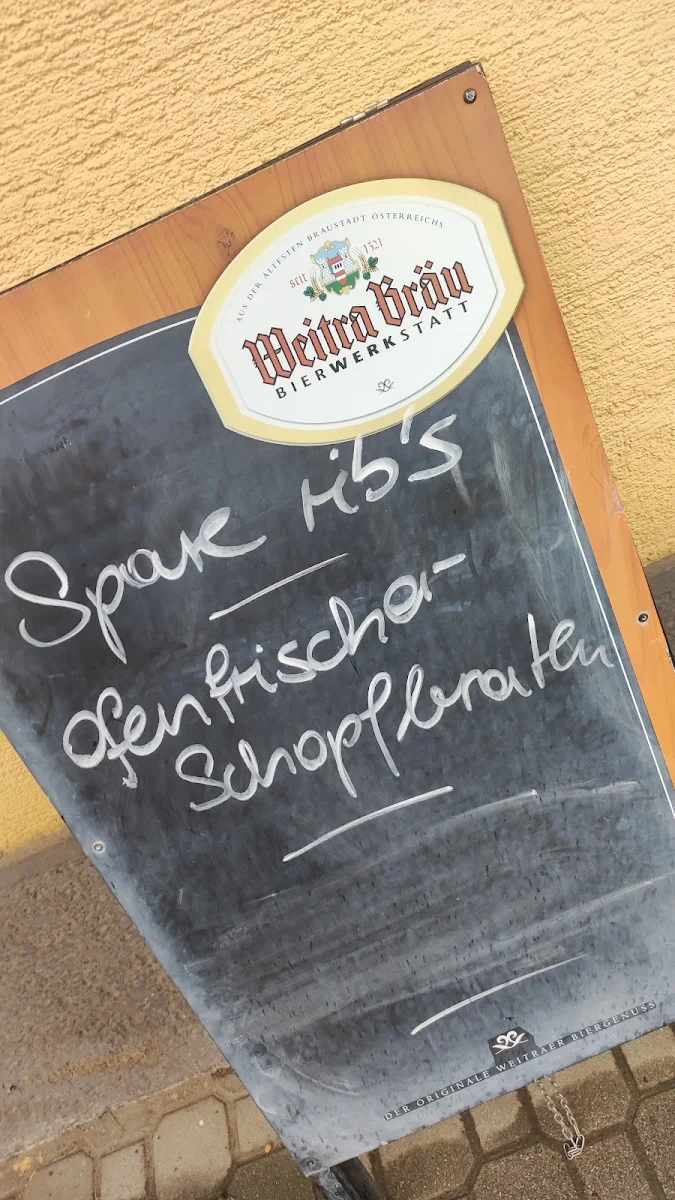 AUS DER ÄLTESTEN BRAUSTADT ÖSTERREICHS
SEIT 1321
Weitra Bräu
BIERWERKSTATT
Spare rib's
ofenfrischer
Schopfbraten
DER ORIGINALE WEITRAER BIERGENUSS